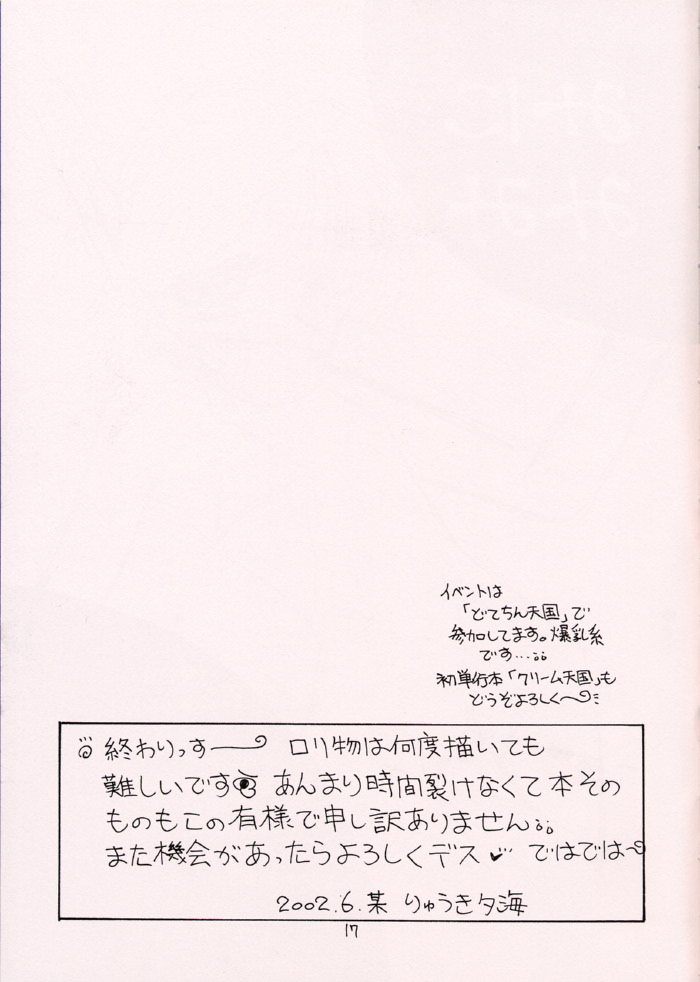 イベントは
「どてちん天国」で
参加してます。爆乳系
です…。。
初単行本「クリーム天国」も
どうぞよろしく〜
終わりっすー ロリ物は何度描いても
難しいです あんまり時間裂けなくて本その
ものもこの有様で申し訳ありません。。
また機会があったらよろしくデス♥ ではでは〜
2002.6.某 りゅうき夕海
17